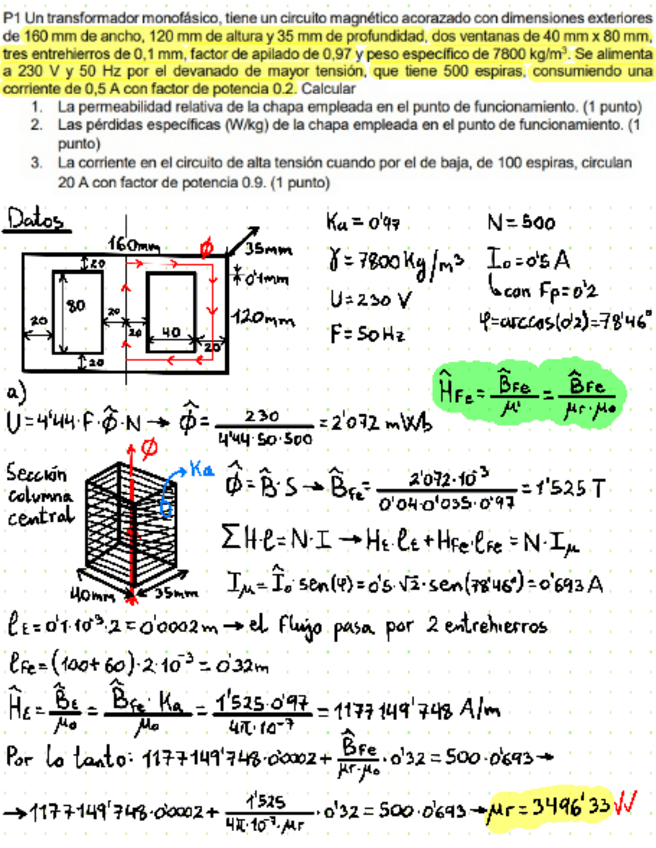 P1 Un transformador monofásico, tiene un circuito magnético acorazado con dimensiones exteriores
de 160 mm de ancho, 120 mm de altura y 35 mm de profundidad, dos ventanas de 40 mm x 80 mm,
tres entrehierros de 0,1 mm, factor de apilado de 0,97 y peso específico de 7800 kg/m³. Se alimenta
a 230 V y 50 Hz por el devanado de mayor tensión, que tiene 500 espiras, consumiendo una
corriente de 0,5 A con factor de potencia 0.2. Calcular
1. La permeabilidad relativa de la chapa empleada en el punto de funcionamiento. (1 punto)
2. Las pérdidas específicas (W/kg) de la chapa empleada en el punto de funcionamiento. (1
punto)
3. La corriente en el circuito de alta tensión cuando por el de baja, de 100 espiras, circulan
20 A con factor de potencia 0.9. (1 punto)
Datos
160mm
Φ
35mm
0'1mm
120mm
20
80
20
20
20
40
20
20
Ka = 0'97
N = 500
γ = 7800 Kg/m³
I₀ = 0'5 A
U = 230 V
↳ con Fp = 0'2
F = 50 Hz
φ = arccos(0'2) = 78'46°
ĤFe = B̂Fe/μ = B̂Fe/(μr·μ₀)
a)
U = 4'44·F·Φ̂·N → Φ̂ = 230/(4'44·50·500) = 2'072 mWb
Sección
columna
central
Φ
Ka
40mm
35mm
Φ̂ = B̂·S → B̂Fe = 2'072·10⁻³/(0'04·0'035·0'97) = 1'525 T
ΣH·l = N·I → HE·lE + HFe·lFe = N·Iμ
Iμ = Î₀·sen(φ) = 0'5·√2·sen(78'46°) = 0'693 A
lE = 0'1·10⁻³·2 = 0'0002m → el flujo pasa por 2 entrehierros
lFe = (100+60)·2·10⁻³ = 0'32m
ĤE = B̂E/μ₀ = B̂Fe·Ka/μ₀ = 1'525·0'97/(4π·10⁻⁷) = 1177149'748 A/m
Por lo tanto: 1177149'748·0'0002 + B̂Fe/(μr·μ₀)·0'32 = 500·0'693 →
→ 1177149'748·0'0002 + 1'525/(4π·10⁻⁷·μr)·0'32 = 500·0'693 → μr = 3496'33